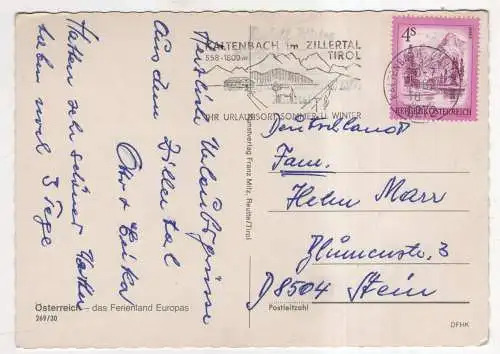 KALTENBACH im ZILLERTAL
558-1800 m TIROL
IHR URLAUBSORT SOMMER U. WINTER
4 S
REPUBLIK ÖSTERREICH
Herzliche Urlaubsgrüsse
aus dem Zillertal
Otto + Erika
Hatten sehr schönes Wetter
haben noch 3 Tage
Kunstverlag Franz Milz, Reutte/Tirol
Deutschland
Fam.
Helm Marr
Blumenstr. 3
D8504 Stein
Postleitzahl
Österreich – das Ferienland Europas
269/30
DFHK